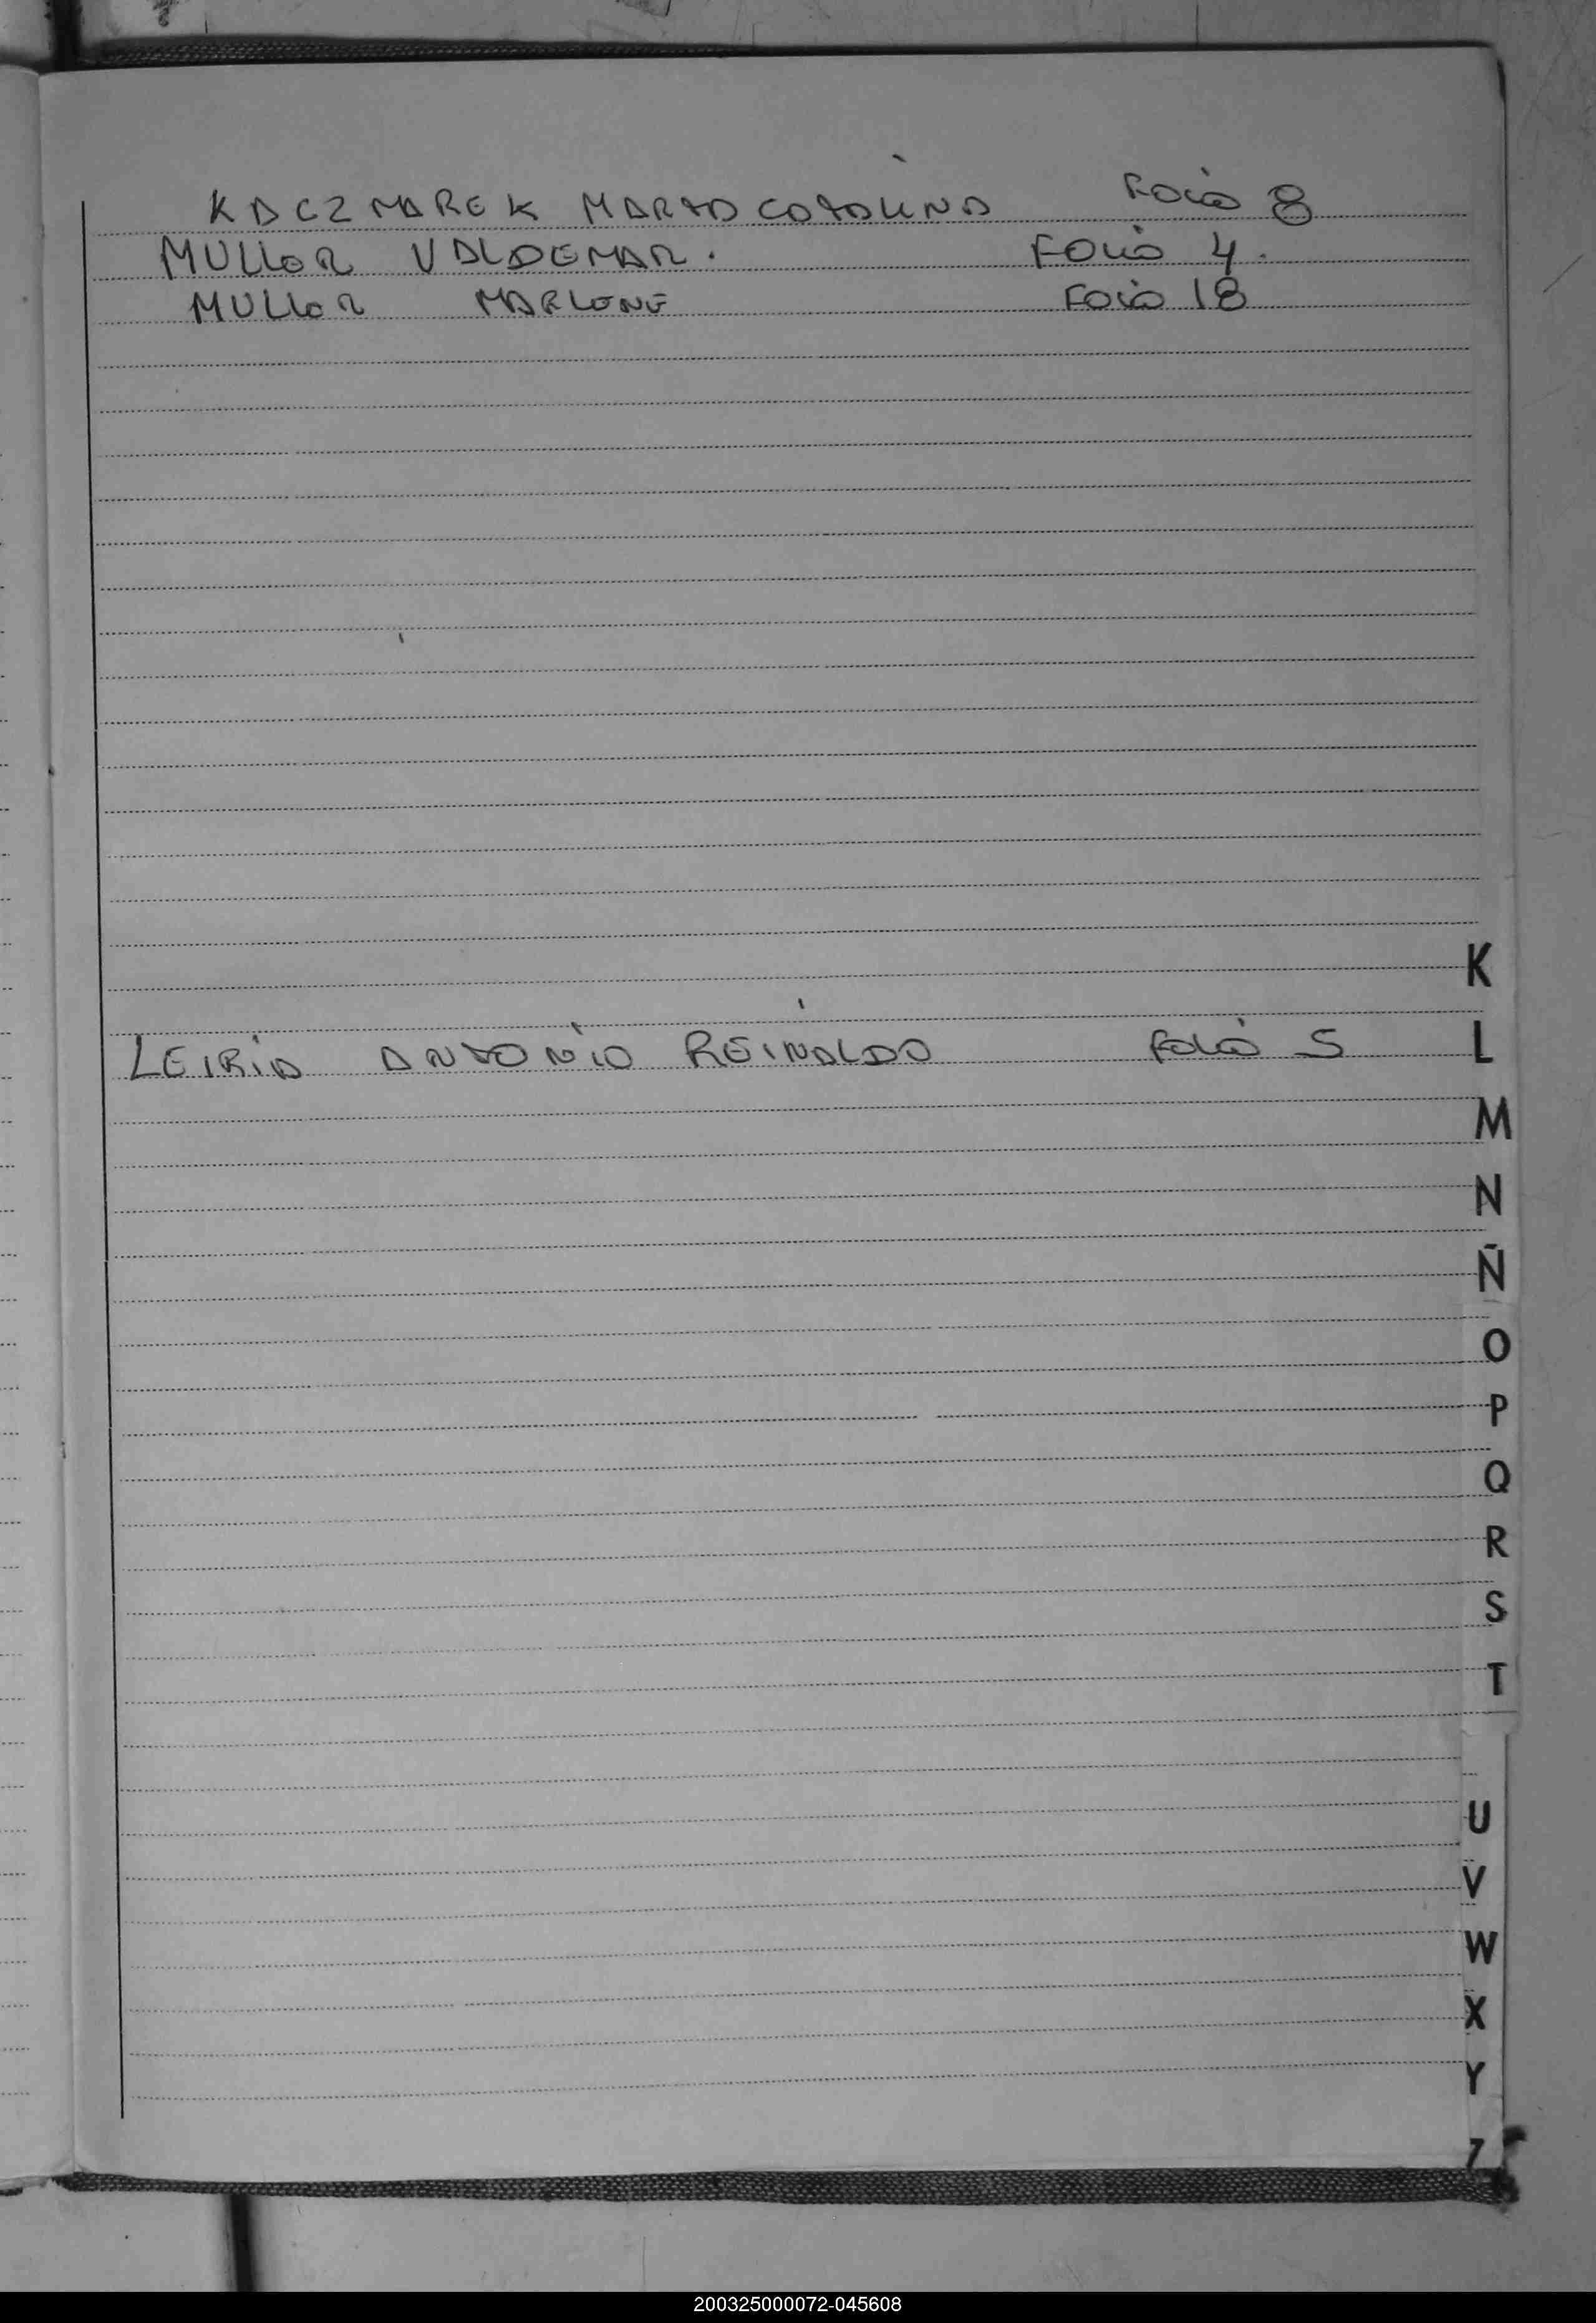 KACZMAREK MARTA CATALINA FOLIO 8
MULLER VALDEMAR. FOLIO 4.
MULLER MARLENE FOLIO 18
K
LEIRIA ANTONIO REINALDO FOLIO 5 L
M
N
Ñ
O
P
Q
R
S
T
U
V
W
X
Y
Z
200325000072-045608